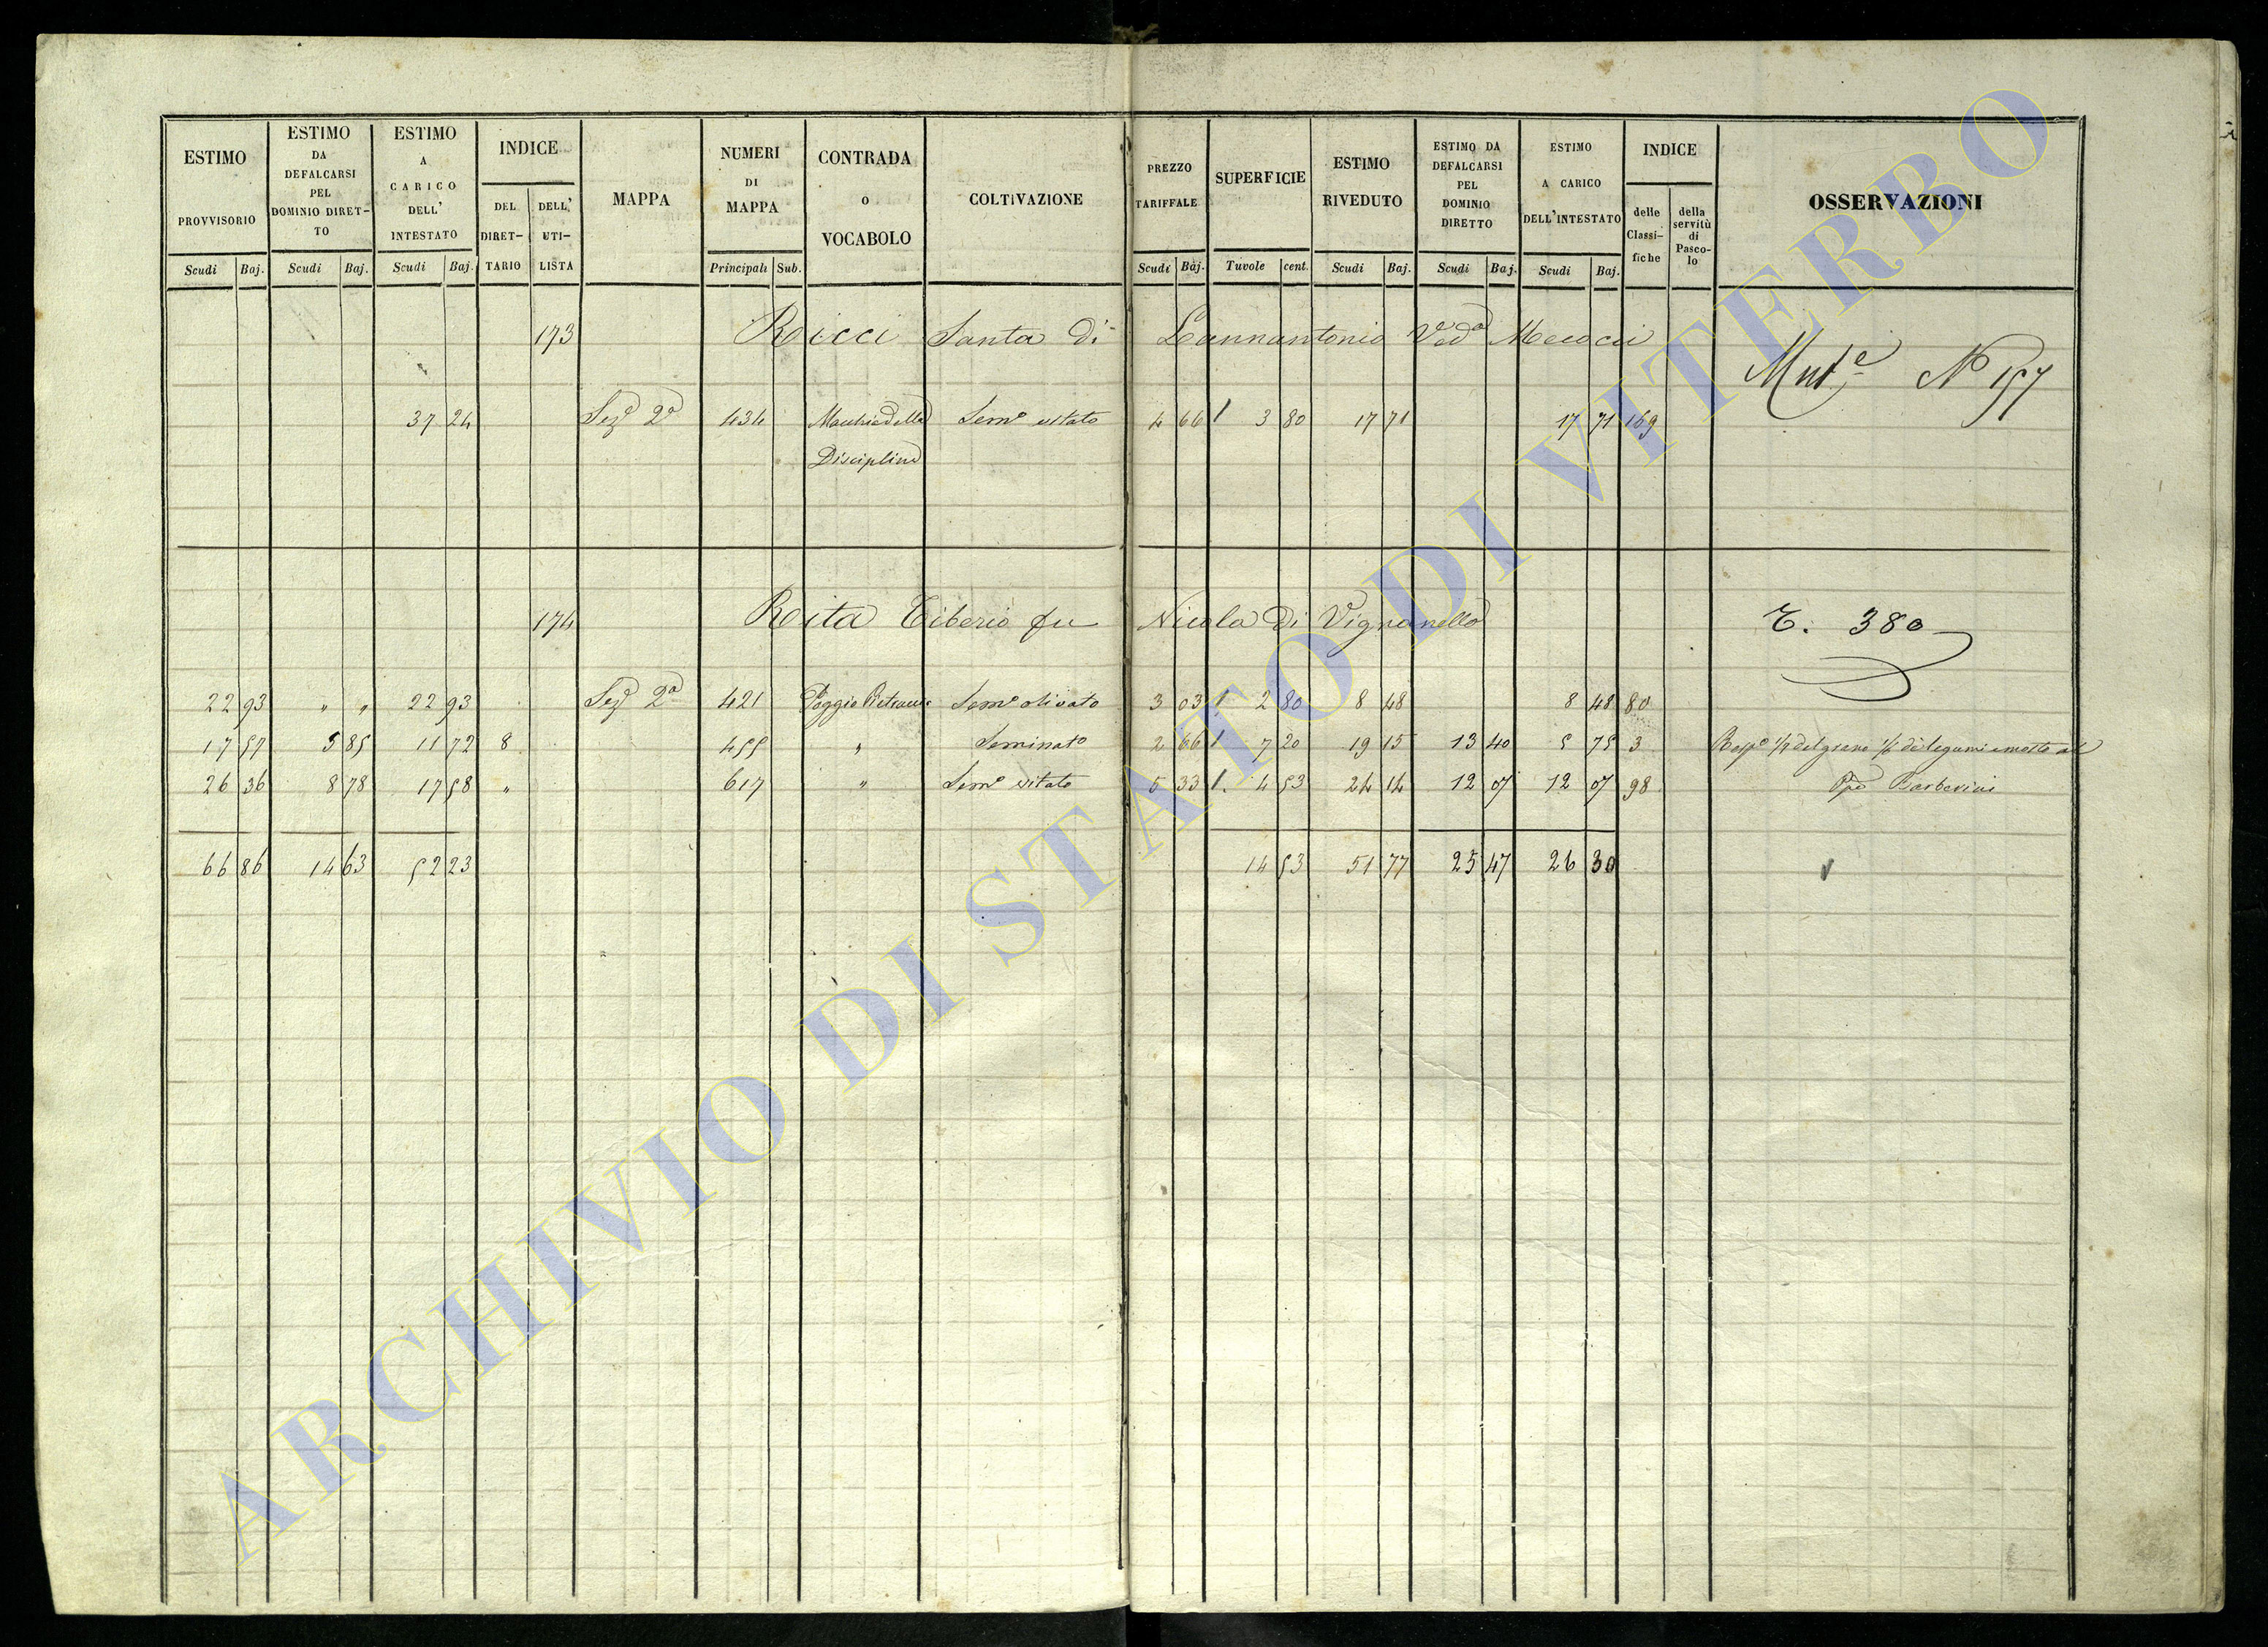 ESTIMO PROVVISORIO
Scudi Baj.
ESTIMO DA DEFALCARSI PEL DOMINIO DIRETTO
Scudi Baj.
ESTIMO A CARICO DELL' INTESTATO
Scudi Baj.
INDICE
DEL DIRETTARIO
DELL' UTILISTA
MAPPA
NUMERI DI MAPPA
Principali Sub.
CONTRADA O VOCABOLO
COLTIVAZIONE
PREZZO TARIFFALE
Scudi Baj.
SUPERFICIE
Tavole cent.
ESTIMO RIVEDUTO
Scudi Baj.
ESTIMO DA DEFALCARSI PEL DOMINIO DIRETTO
Scudi Baj.
ESTIMO A CARICO DELL'INTESTATO
Scudi Baj.
INDICE
delle Classifiche
della servitù di Pascolo
OSSERVAZIONI
173 Ricci Santa di Lannantonio Ved.a Mecocci
Mut.e N 157
37 24 Sez.e 2a 434 Macchie della Sem.o vitato 4 66 1 3 80 17 71 17 71 169
Disciplina
174 Rita Tiberio fu Nicola di Vignanello T. 380
22 93 " " 22 93 Sez.e 2a 421 Poggio Sem.o olivato 3 03 1 2 80 8 48 8 48 80
17 57 5 85 11 72 8 455 " Seminato 2 66 1 7 20 19 15 13 40 5 75 3 Risp.e del grano de legumi e mosto al
26 36 8 78 17 58 " 617 " Sem.o vitato 5 33 1. 4 53 24 14 12 07 12 07 98 Ppe Barberini
66 86 14 63 52 23 14 53 51 77 25 47 26 30
ARCHIVIO DI STATO DI VITERBO